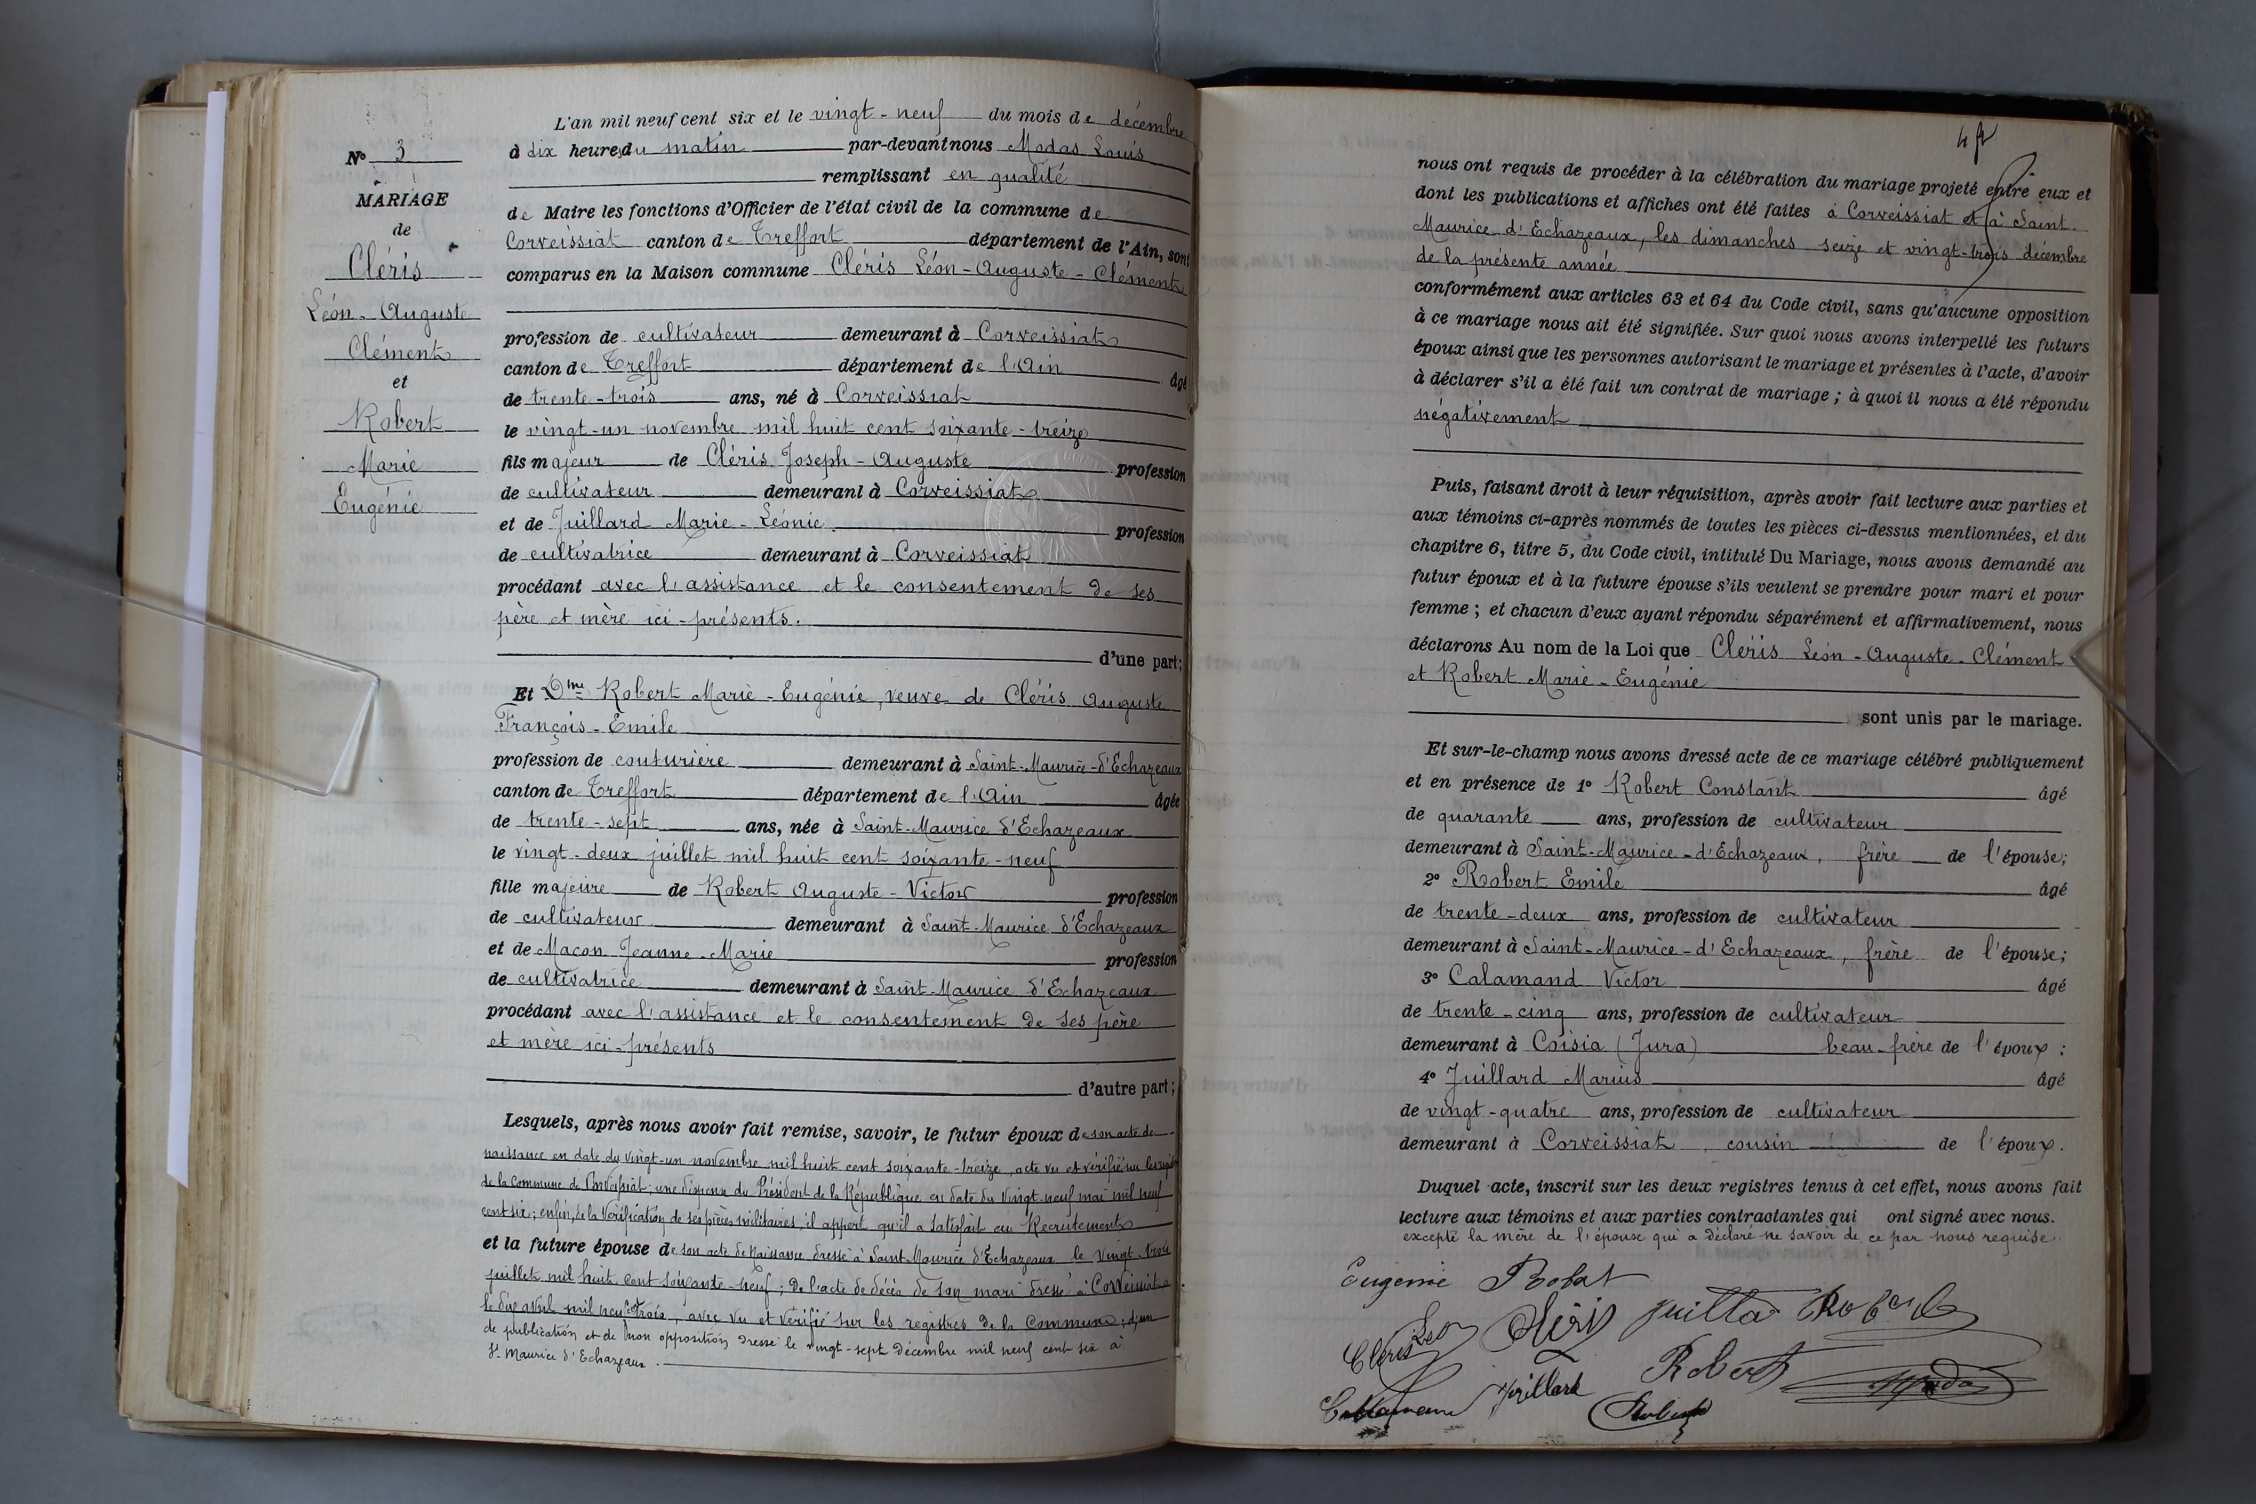 N° 3
MARIAGE
de
Cléris
Léon-Auguste
Clément
et
Robert
Marie
Eugénie
L'an mil neuf cent six et le vingt-neuf du mois de décembre
à dix heures du matin par-devant nous Modas Louis
remplissant en qualité
de Maire les fonctions d'Officier de l'état civil de la commune de
Corveissiat canton de Treffort département de l'Ain, sont
comparus en la Maison commune Cléris Léon-Auguste-Clément
profession de cultivateur demeurant à Corveissiat
canton de Treffort département de l'Ain âgé
de trente-trois ans, né à Corveissiat
le vingt-un novembre mil huit cent soixante-treize
fils majeur de Cléris Joseph-Auguste profession
de cultivateur demeurant à Corveissiat
et de Juillard Marie-Léonie profession
de cultivatrice demeurant à Corveissiat
procédant avec l'assistance et le consentement de ses
père et mère ici-présents.
d'une part;
Et Dme Robert Marie-Eugénie, veuve de Cléris Auguste
François-Emile
profession de couturière demeurant à Saint-Maurice-d'Echazeaux
canton de Treffort département de l'Ain âgée
de trente-sept ans, née à Saint-Maurice d'Echazeaux
le vingt-deux juillet mil huit cent soixante-neuf
fille majeure de Robert Auguste-Victor profession
de cultivateur demeurant à Saint-Maurice d'Echazeaux
et de Macon Jeanne-Marie profession
de cultivatrice demeurant à Saint-Maurice d'Echazeaux
procédant avec l'assistance et le consentement de ses père
et mère ici-présents
d'autre part;
Lesquels, après nous avoir fait remise, savoir, le futur époux de son acte de
naissance en date du vingt-un novembre mil huit cent soixante-treize, acte vu et vérifié sur les registres
de la commune de Corveissiat; une dispense du Président de la République en date du vingt-neuf mai mil neuf
cent six; enfin, de la vérification de ses pièces militaires, il appert qu'il a satisfait au Recrutement
et la future épouse de son acte de Naissance dressé à Saint-Maurice d'Echazeaux le vingt-trois
juillet mil huit cent soixante-neuf; de l'acte de décès de son mari dressé à Corveissiat
le dix avril mil neuf cent trois, avec vu et vérifié sur les registres de la Commune; d'un
de publication et de non opposition dressé le vingt-sept décembre mil neuf cent six à
St Maurice d'Echazeaux.
nous ont requis de procéder à la célébration du mariage projeté entre eux et
dont les publications et affiches ont été faites à Corveissiat et à Saint-
Maurice d'Echazeaux, les dimanches seize et vingt-trois décembre
de la présente année
conformément aux articles 63 et 64 du Code civil, sans qu'aucune opposition
à ce mariage nous ait été signifiée. Sur quoi nous avons interpellé les futurs
époux ainsi que les personnes autorisant le mariage et présentes à l'acte, d'avoir
à déclarer s'il a été fait un contrat de mariage; à quoi il nous a été répondu
négativement
Puis, faisant droit à leur réquisition, après avoir fait lecture aux parties et
aux témoins ci-après nommés de toutes les pièces ci-dessus mentionnées, et du
chapitre 6, titre 5, du Code civil, intitulé Du Mariage, nous avons demandé au
futur époux et à la future épouse s'ils veulent se prendre pour mari et pour
femme; et chacun d'eux ayant répondu séparément et affirmativement, nous
déclarons Au nom de la Loi que Cléris Léon-Auguste-Clément
et Robert Marie-Eugénie
sont unis par le mariage.
Et sur-le-champ nous avons dressé acte de ce mariage célébré publiquement
et en présence de 1° Robert Constant âgé
de quarante ans, profession de cultivateur
demeurant à Saint-Maurice-d'Echazeaux, frère de l'épouse;
2° Robert Emile âgé
de trente-deux ans, profession de cultivateur
demeurant à Saint-Maurice-d'Echazeaux, frère de l'épouse;
3° Calamand Victor âgé
de trente-cinq ans, profession de cultivateur
demeurant à Coisia (Jura) beau-frère de l'époux;
4° Juillard Marius âgé
de vingt-quatre ans, profession de cultivateur
demeurant à Corveissiat cousin de l'époux.
Duquel acte, inscrit sur les deux registres tenus à cet effet, nous avons fait
lecture aux témoins et aux parties contractantes qui ont signé avec nous.
excepté la mère de l'épouse qui a déclaré ne savoir de ce par nous requise.
Eugénie Robert
Cléris Léon Cléris Juillard Robert
Robert Modas
Calamand Juillard Robert